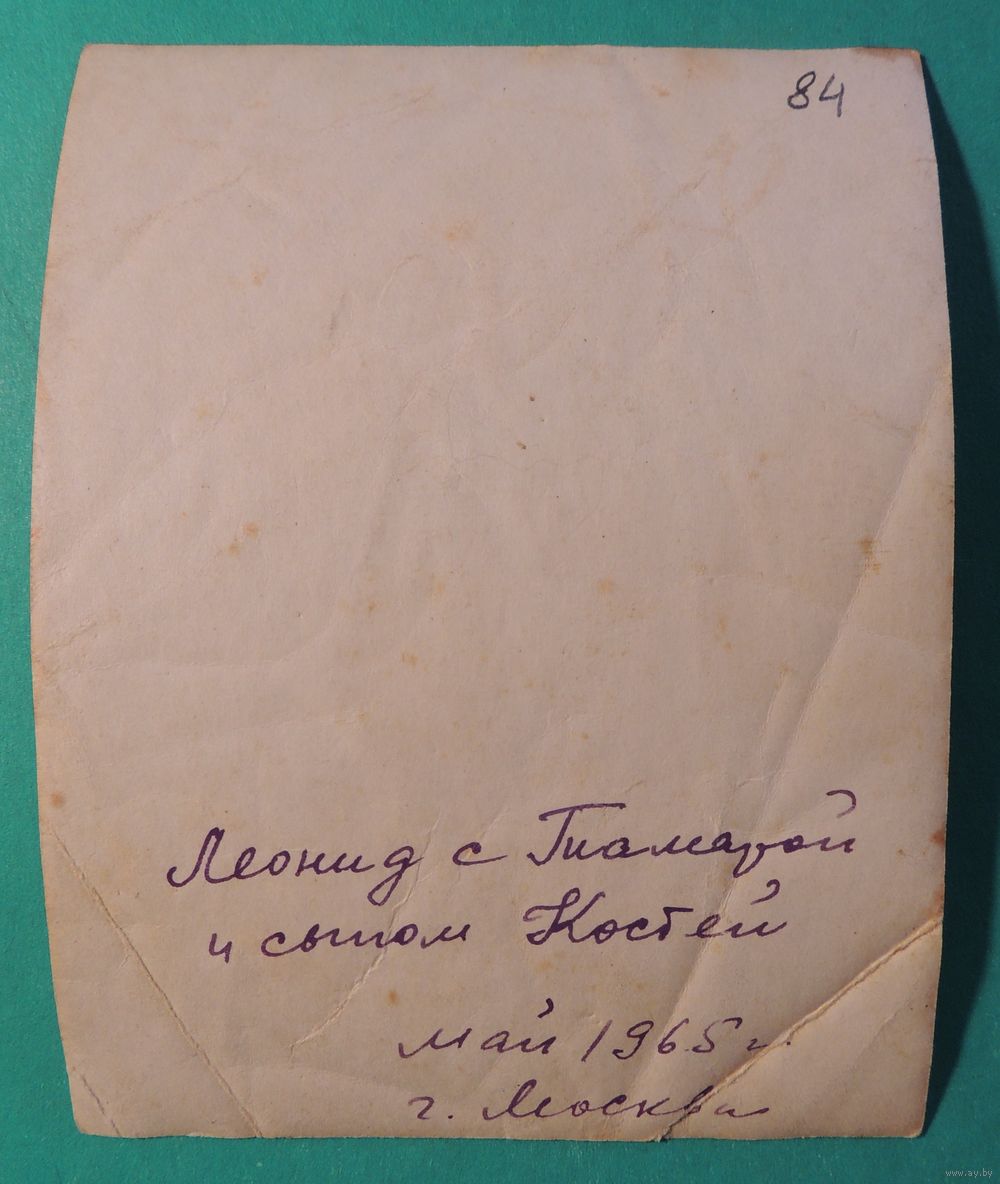 84
Леонид с Тамарой
и сыном Костей
май 1965 г.
г. Москва
www.ay.by